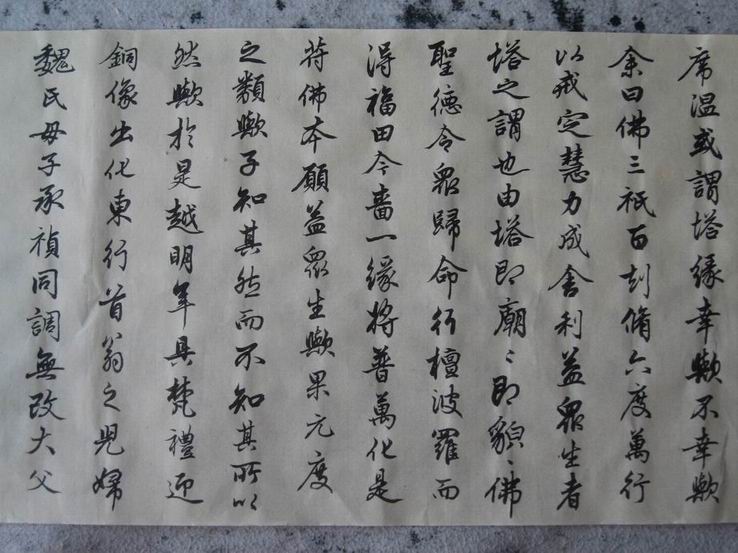 席温或謂塔緣幸歟不幸歟
余曰佛三祇百刧脩六度萬行
以戒定慧力成舍利益眾生者
塔之謂也由塔即廟〻即貌〻佛
聖德令眾歸命行檀波羅而
得福田今嗇一緣將普萬化是
符佛本願益眾生歟果元度
之類歟子知其然而不知其所以
然歟於是越明年具梵禮迎
銅像出化東行首翁之兒婦
魏氏母子承禎同調無改大父